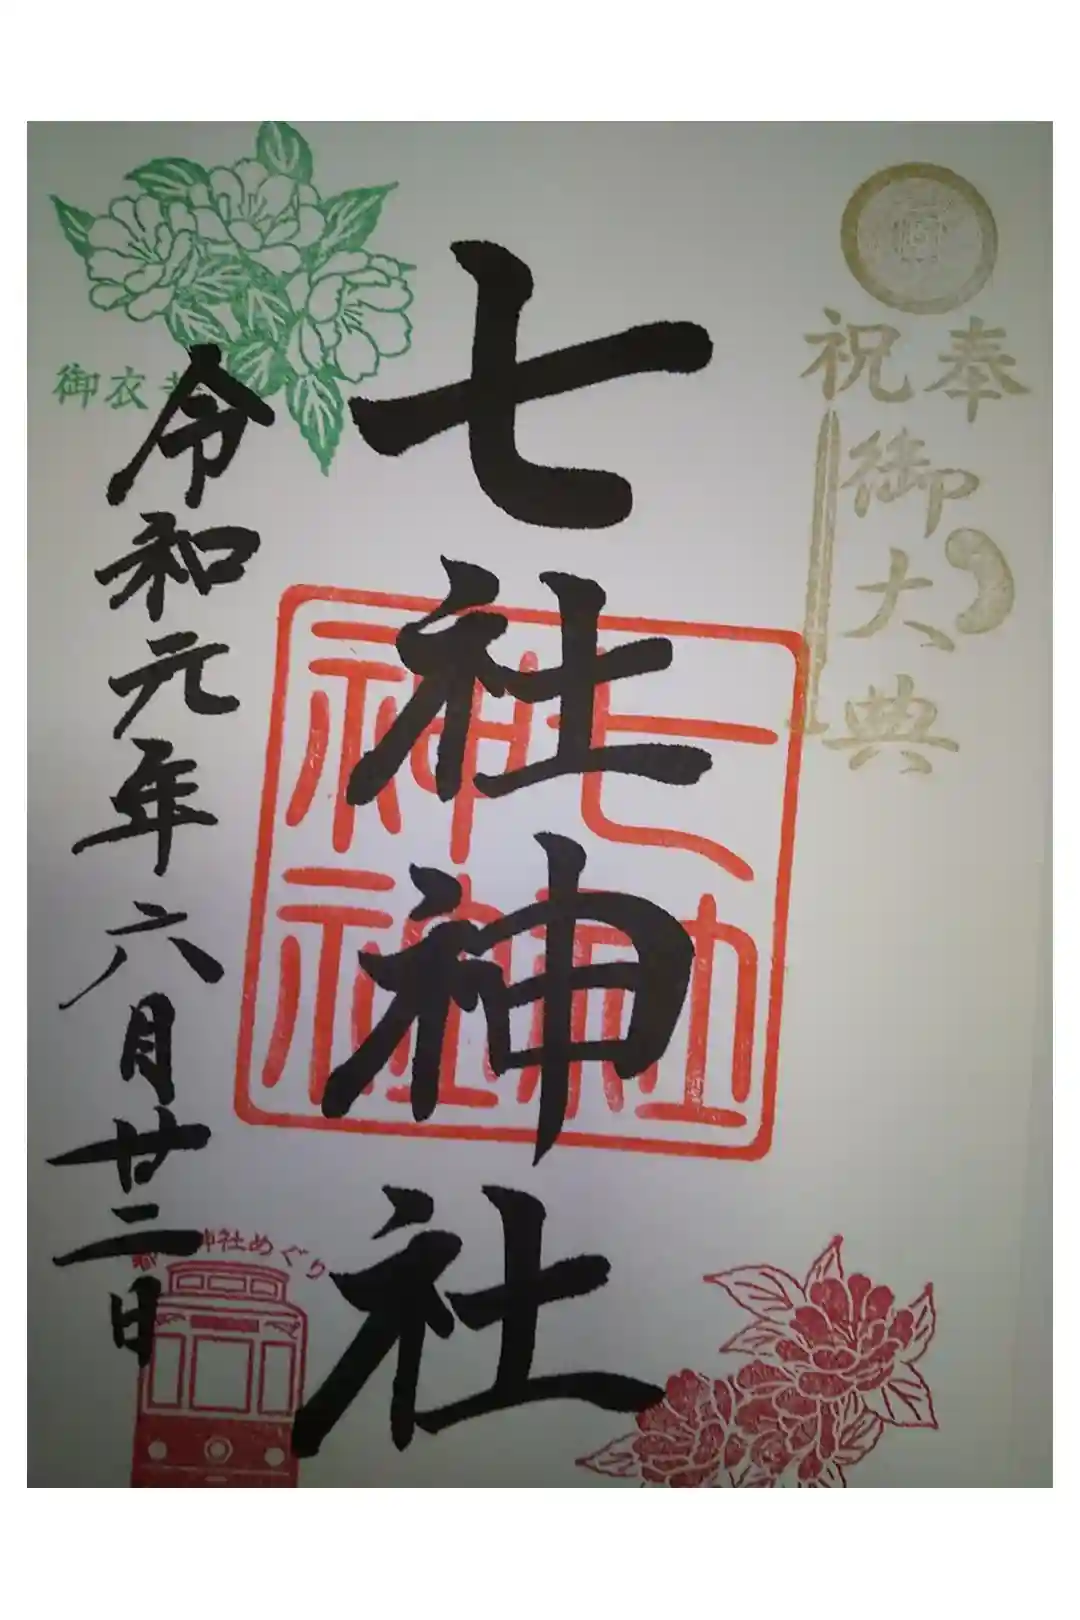 奉
祝
御大典
七社神社
七社神社
令和元年六月廿二日
御衣
神社めぐり